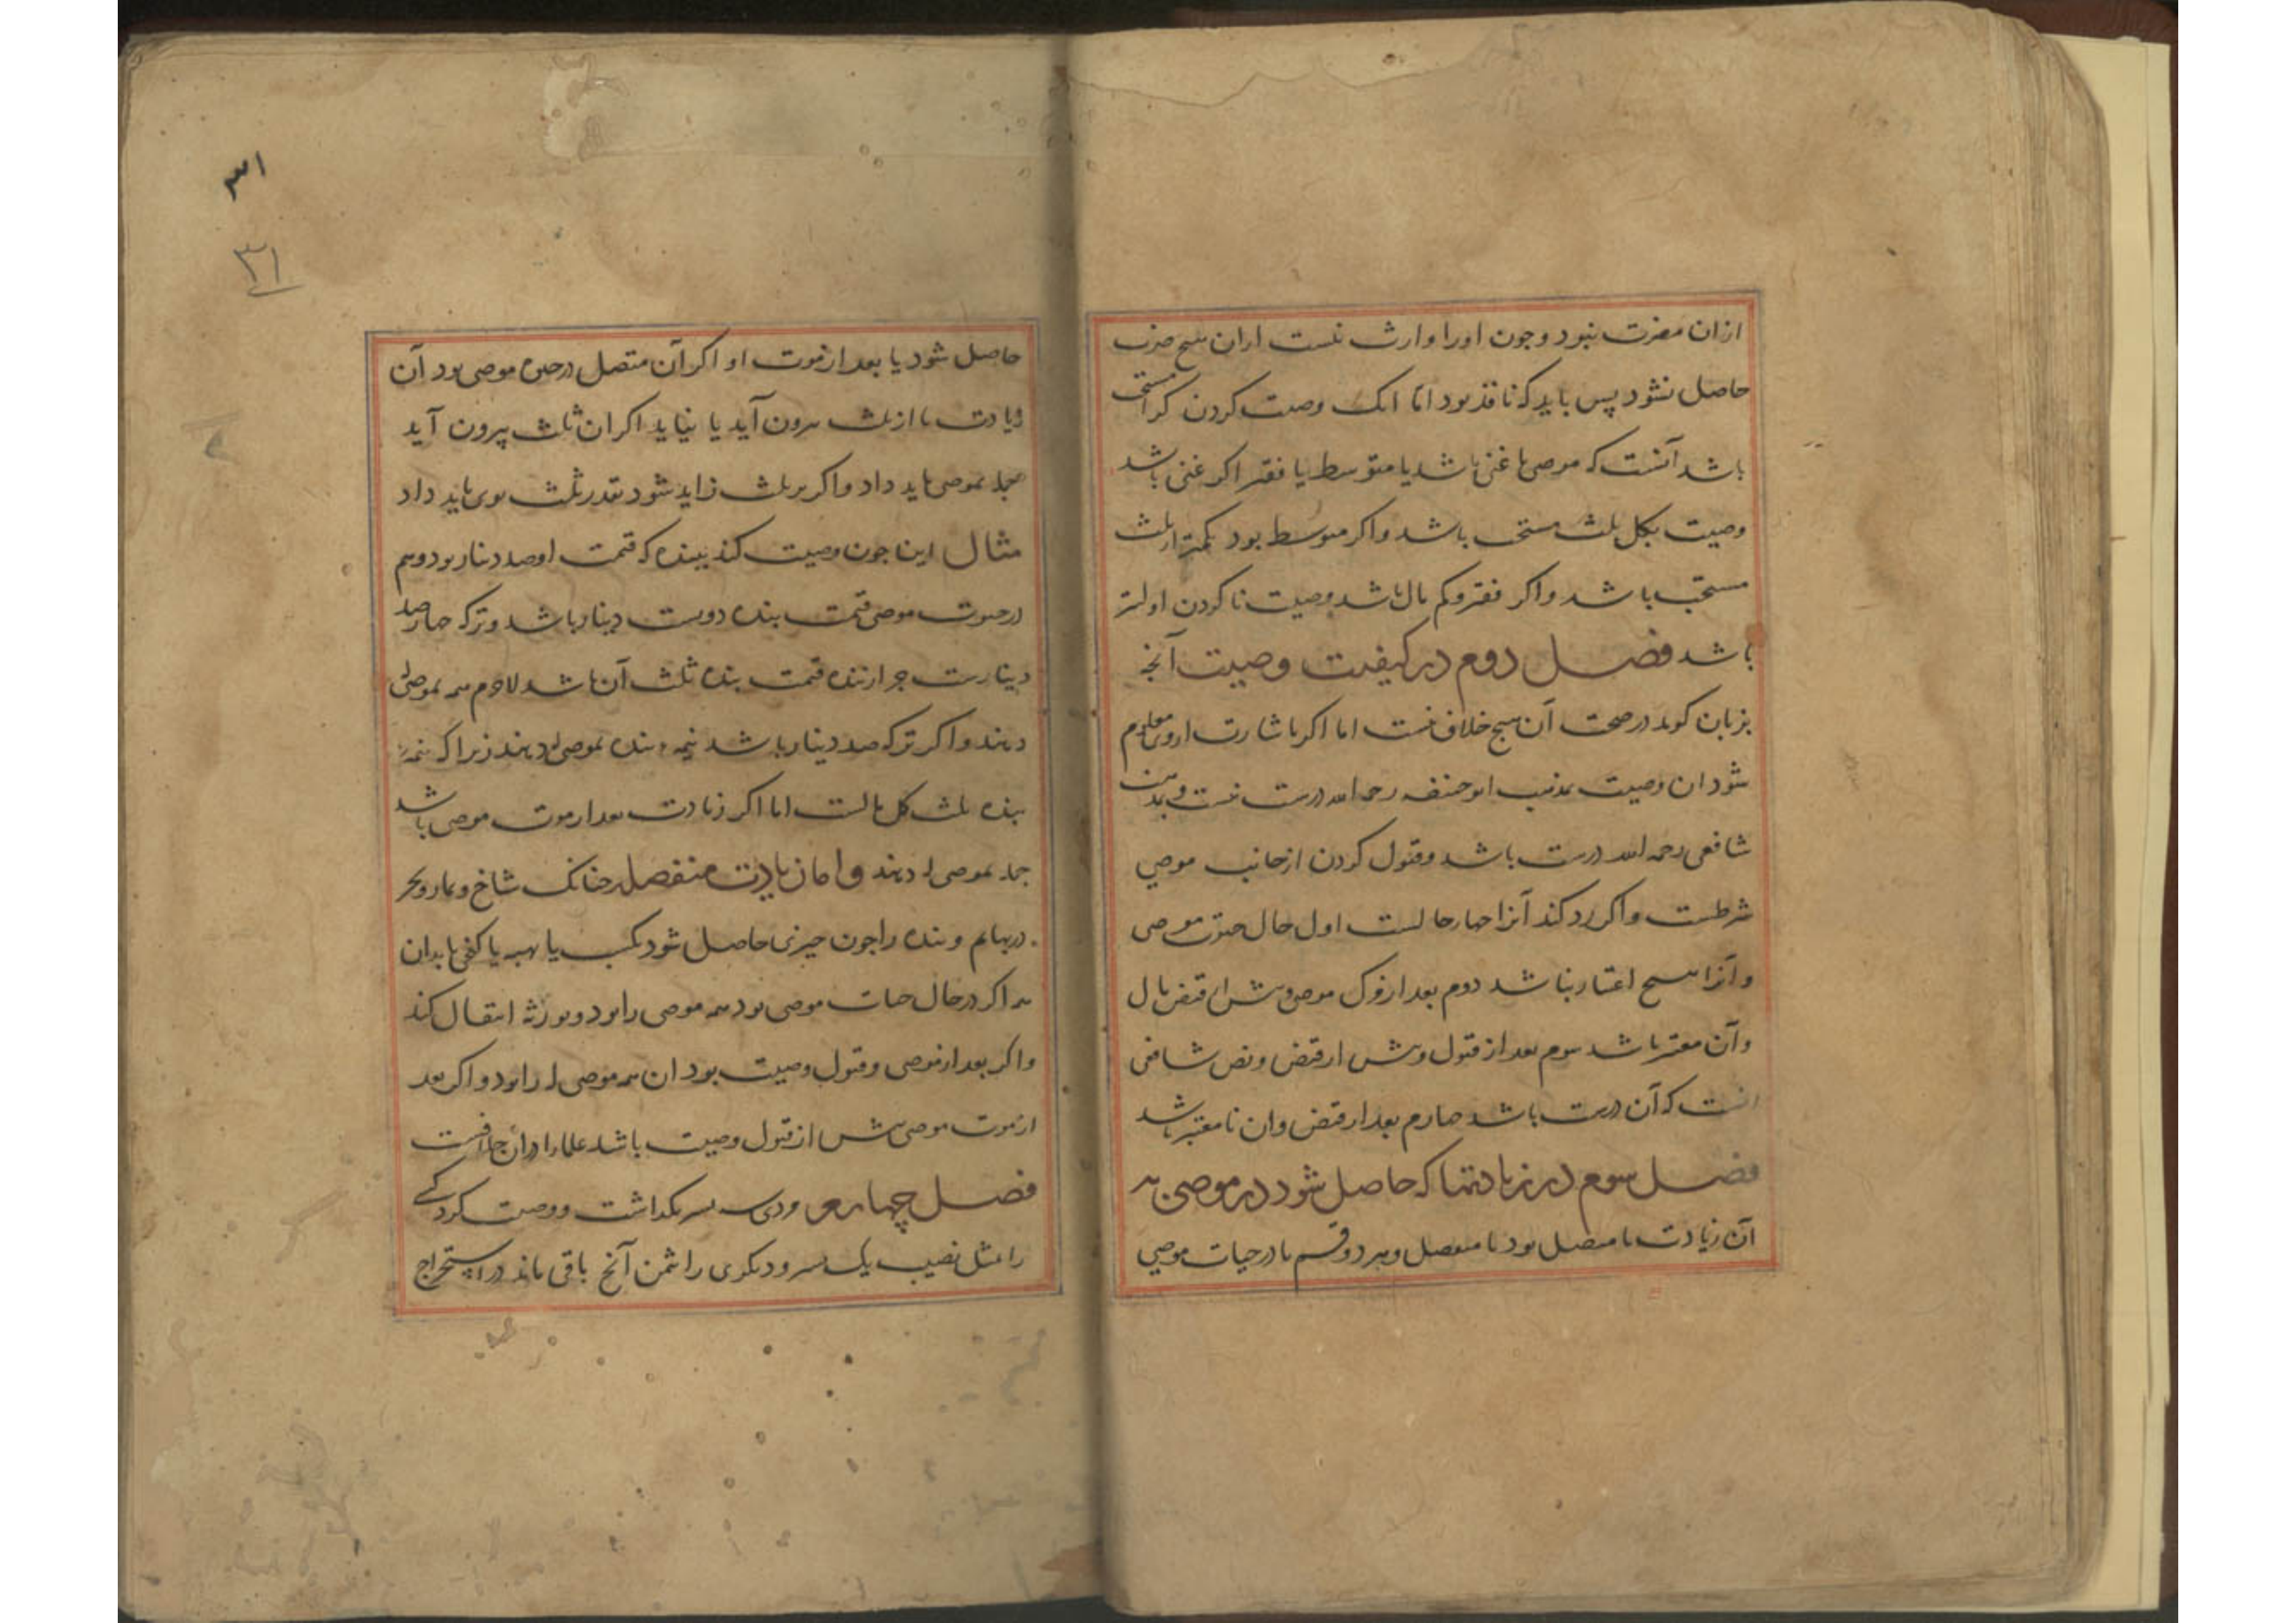 ازان مضرت نبود و چون اورا وارث نیست ازان هیچ ضرب
حاصل نشود پس باید که نافذ بود اما آنک وصیت کردن کرا مستحب
باشد آنست که موصی یا غنی باشد یا متوسط یا فقیر اکر غنی باشد
وصیت بکل ثلث مستحب باشد و اکر متوسط بود بکمتر از ثلث
مستحب باشد و اکر فقیر و کم مال باشد وصیت نا کردن اولیتر
باشد فصل دوم در کیفیت وصیت آنچه
بزبان کوید در صحت آن هیچ خلاف نیست اما اکر باشارت از وی معلوم
شود ان وصیت بمذهب ابوحنیفه رحمه الله درست نیست و بمذهب
شافعی رحمه الله درست باشد و قبول کردن از جانب موصی
شرطست و اکر رد کند آنرا چهار حالست اول حال حیوة موصی
و آنرا هیچ اعتبار نباشد دوم بعد از مرک موصی و پیش از قبض مال
و آن معتبر باشد سوم بعد از قبول و پیش از قبض و نص شافعی
انست که آن درست باشد چهارم بعد از قبض وان نا معتبر باشد
فصل سوم در زیادتها که حاصل شود در موصی به
آن زیادت یا متصل بود یا منفصل و هر دو قسم یا در حیات موصی
۳۱
۳۱
حاصل شود یا بعد از موت او اکر آن متصل در حین موصی بود آن
زیادت یا از ثلث بیرون آید یا نیاید اکر ان ثلث بیرون آید
جمله بموصی باید داد و اکر بر ثلث زاید شود بقدر ثلث بوی باید داد
مثال این چون وصیت کند ببنده که قیمت او صد دینار بود و هم
در حیوت موصی قیمت بنده دویست دینار باشد و ترکه چهار صد
دینارست جز از بنده قیمت بنده ثلث آن باشد لاجرم همه بموصی
دهند و اکر ترکه صد دینار باشد نیمه بنده بموصی له دهند زیرا که نیمه
بنده ثلث کل مالست اما اکر زیادت بعد از موت موصی باشد
جمله بموصی له دهند و اما زیادت منفصل چنانک شاخ و ثمار و بحر
در بهایم و بنده را چون چیزی حاصل شود بکسب یا بهبه یا کفی یابد ان
همه اکر در حال حیات موصی بود همه موصی را بود و بورثه انتقال کند
و اکر بعد از موصی و قبول وصیت بود ان همه موصی له را بود و اکر بعد
از موت موصی پیش از قبول وصیت باشد علما را در ان خلافست
فصل چهارم مردی سه پسر بکذاشت و وصیت کرد کسی
را مثل نصیب یک پسر و دیکری را ثمن آنچ باقی ماند در استخراج